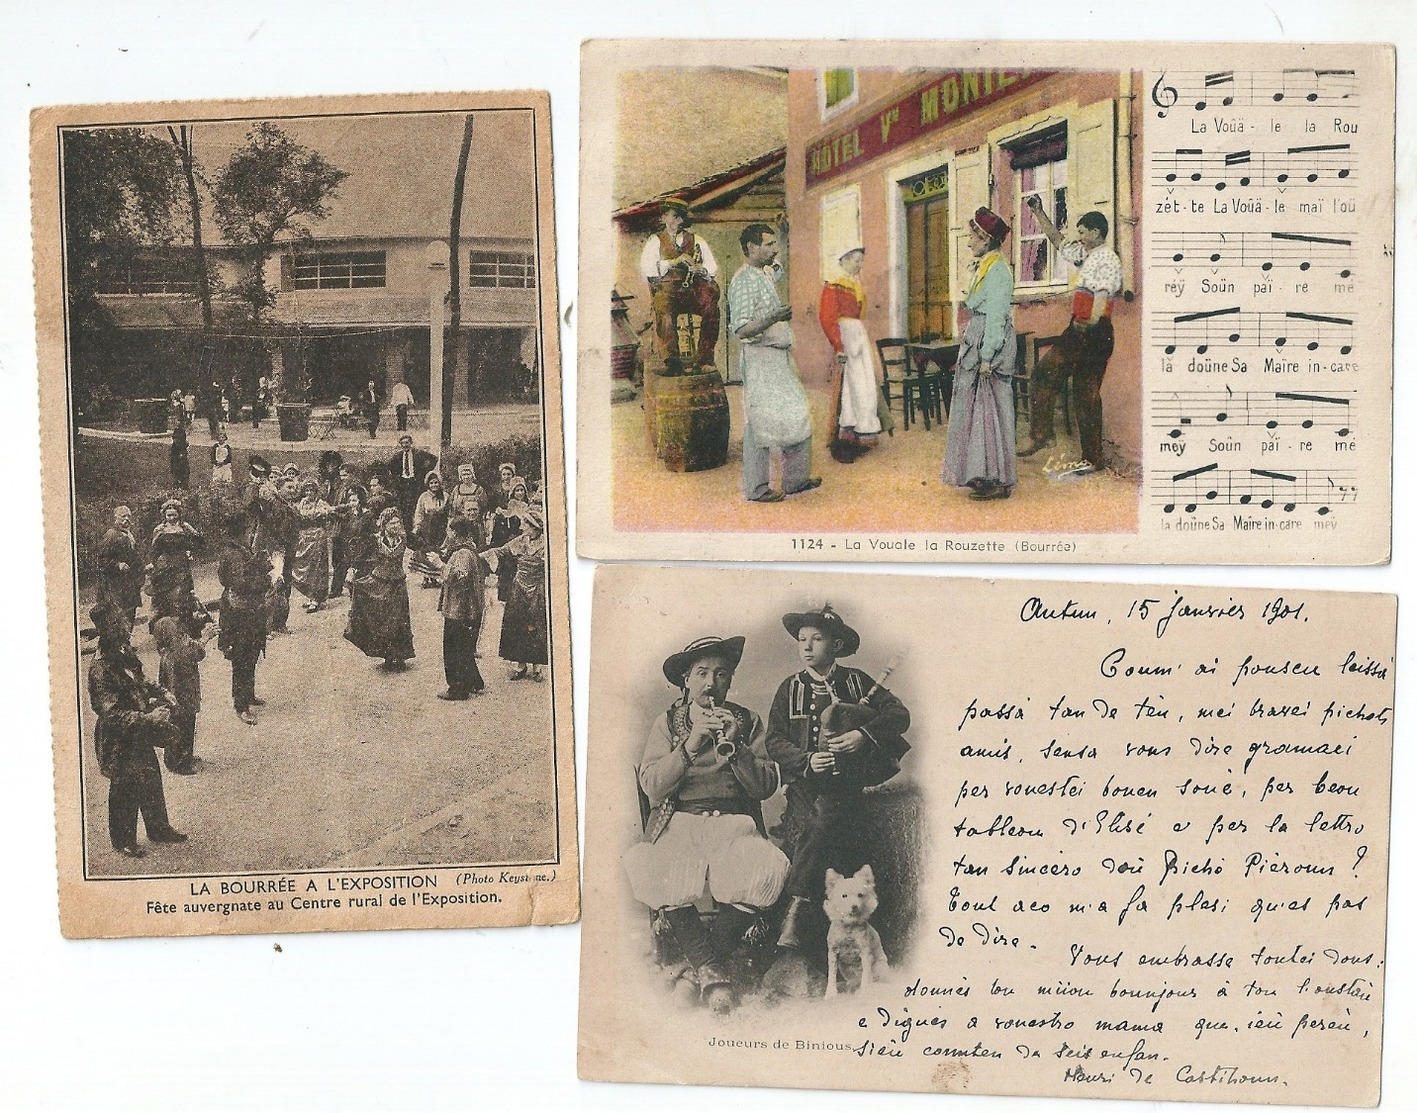 LA BOURRÉE A L'EXPOSITION (Photo Keystone.)
Fête auvergnate au Centre rural de l'Exposition.
HÔTEL Vve MONIE
La Voûä - le la Rou
zét-te La Voûä-le maï l'oü
rëÿ Soün païre mé
là doüne Sa Maïre in-care
meÿ Soün païre mé
la doüne Sa Maïre in-care meÿ
Lémo
1124 - La Vouale la Rouzette (Bourrée)
Autun, 15 janvier 1901.
Coum' ai pouscu leissa
passà tan de tèn, mei bravei pichots
amis, sensa vous dire gramaci
per vouestei bouen souè, per beou
tableou d'Elisé e per la lettro
tan sincèro doù Pichò Pièroun ?
Tout aco m'a fa plesi qu'es pas
de dire.
Vous embrasse toutei dous:
dounès lou miéou bounjour à tou l'oustaù
e digués a vouestro mama que, ieù pereù,
sieù countèn de seis enfan.
Henri de
Joueurs de Binious